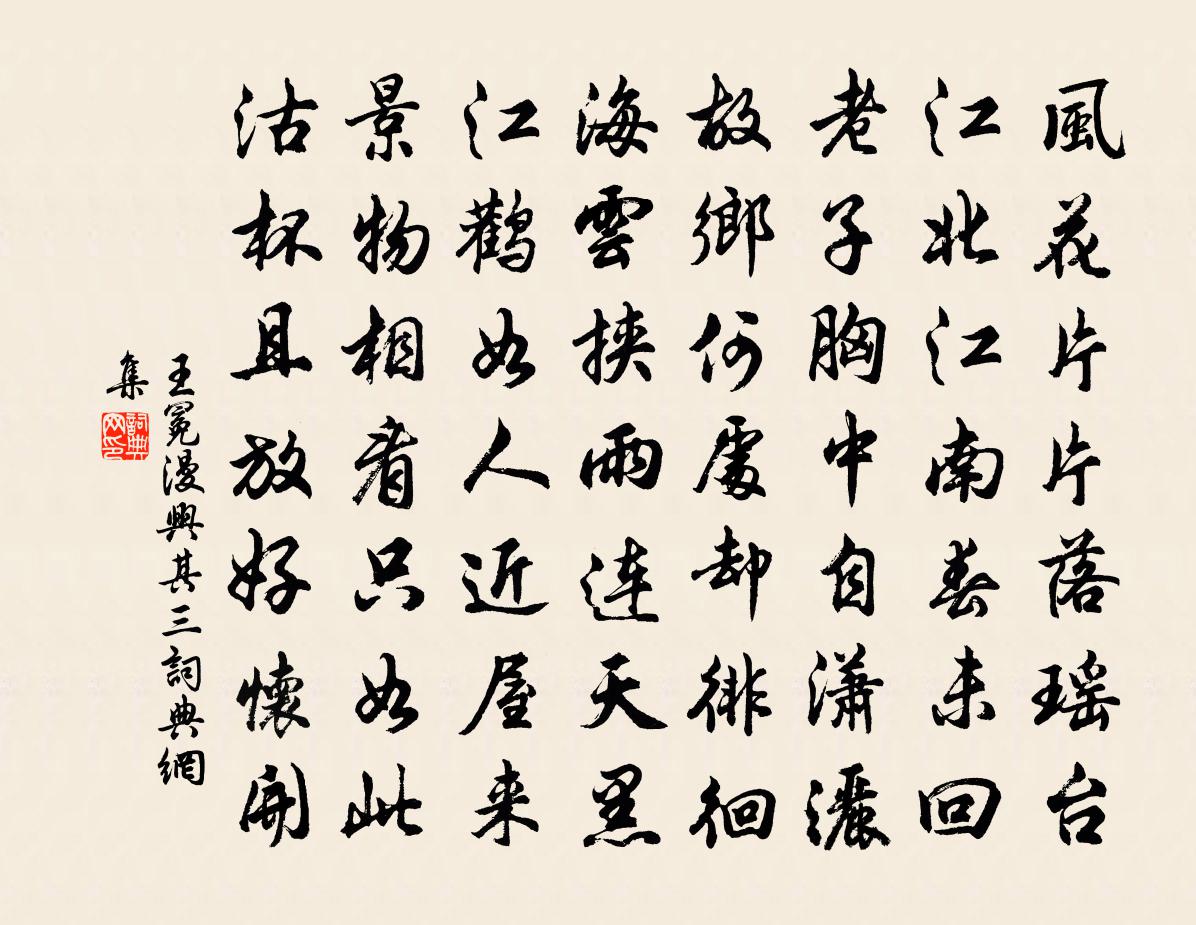 風花片片落瑶台
江北江南春未回
老子胸中自瀟灑
故鄉何處却徘徊
海雲挾雨連天黑
江鸛如人近屋来
景物相看只如此
沽杯且放好懷開
王冕漫興其三詞典網
集
詞典网印